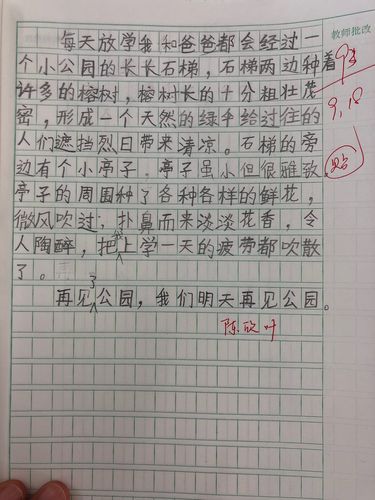 教师批改
每天放学我和爸爸都会经过一
个小公园的长长石梯，石梯两边种着
许多的榕树，榕树长的十分粗壮茂
密，形成一个天然的绿手给过往的
人们遮挡烈日带来清凉。石梯的旁
边有个小亭子，亭子虽小但很雅致。
亭子的周围种了各种各样的鲜花，
微风吹过，扑鼻而来淡淡花香，令
人陶醉，把我上学一天的疲劳都吹散
了。
再见了公园，我们明天再见公园。
9.18